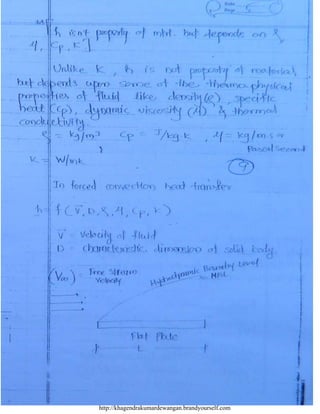 h is not property of mtrl. but depends on ρ,
μ, Cp, K ]
Unlike K, h is not property of material,
but depends upon some of the thermophysical
properties of fluid like density(ρ), specific
heat (Cp), dynamic viscosity (μ) & thermal
conductivity.
ρ = kg/m³ Cp = J/kg.k , μ = kg/m.s or
Pascal second
K = W/mk
(9)
In forced convection heat transfer
h = f ( V, D, ρ, μ, Cp, K )
V = velocity of fluid
D = characteristic dimension of solid body.
(V∞) = Free stream velocity
Hydrodynamic Boundary
= HBL
Flat Plate
L
http://khagendrakumardewangan.brandyourself.com